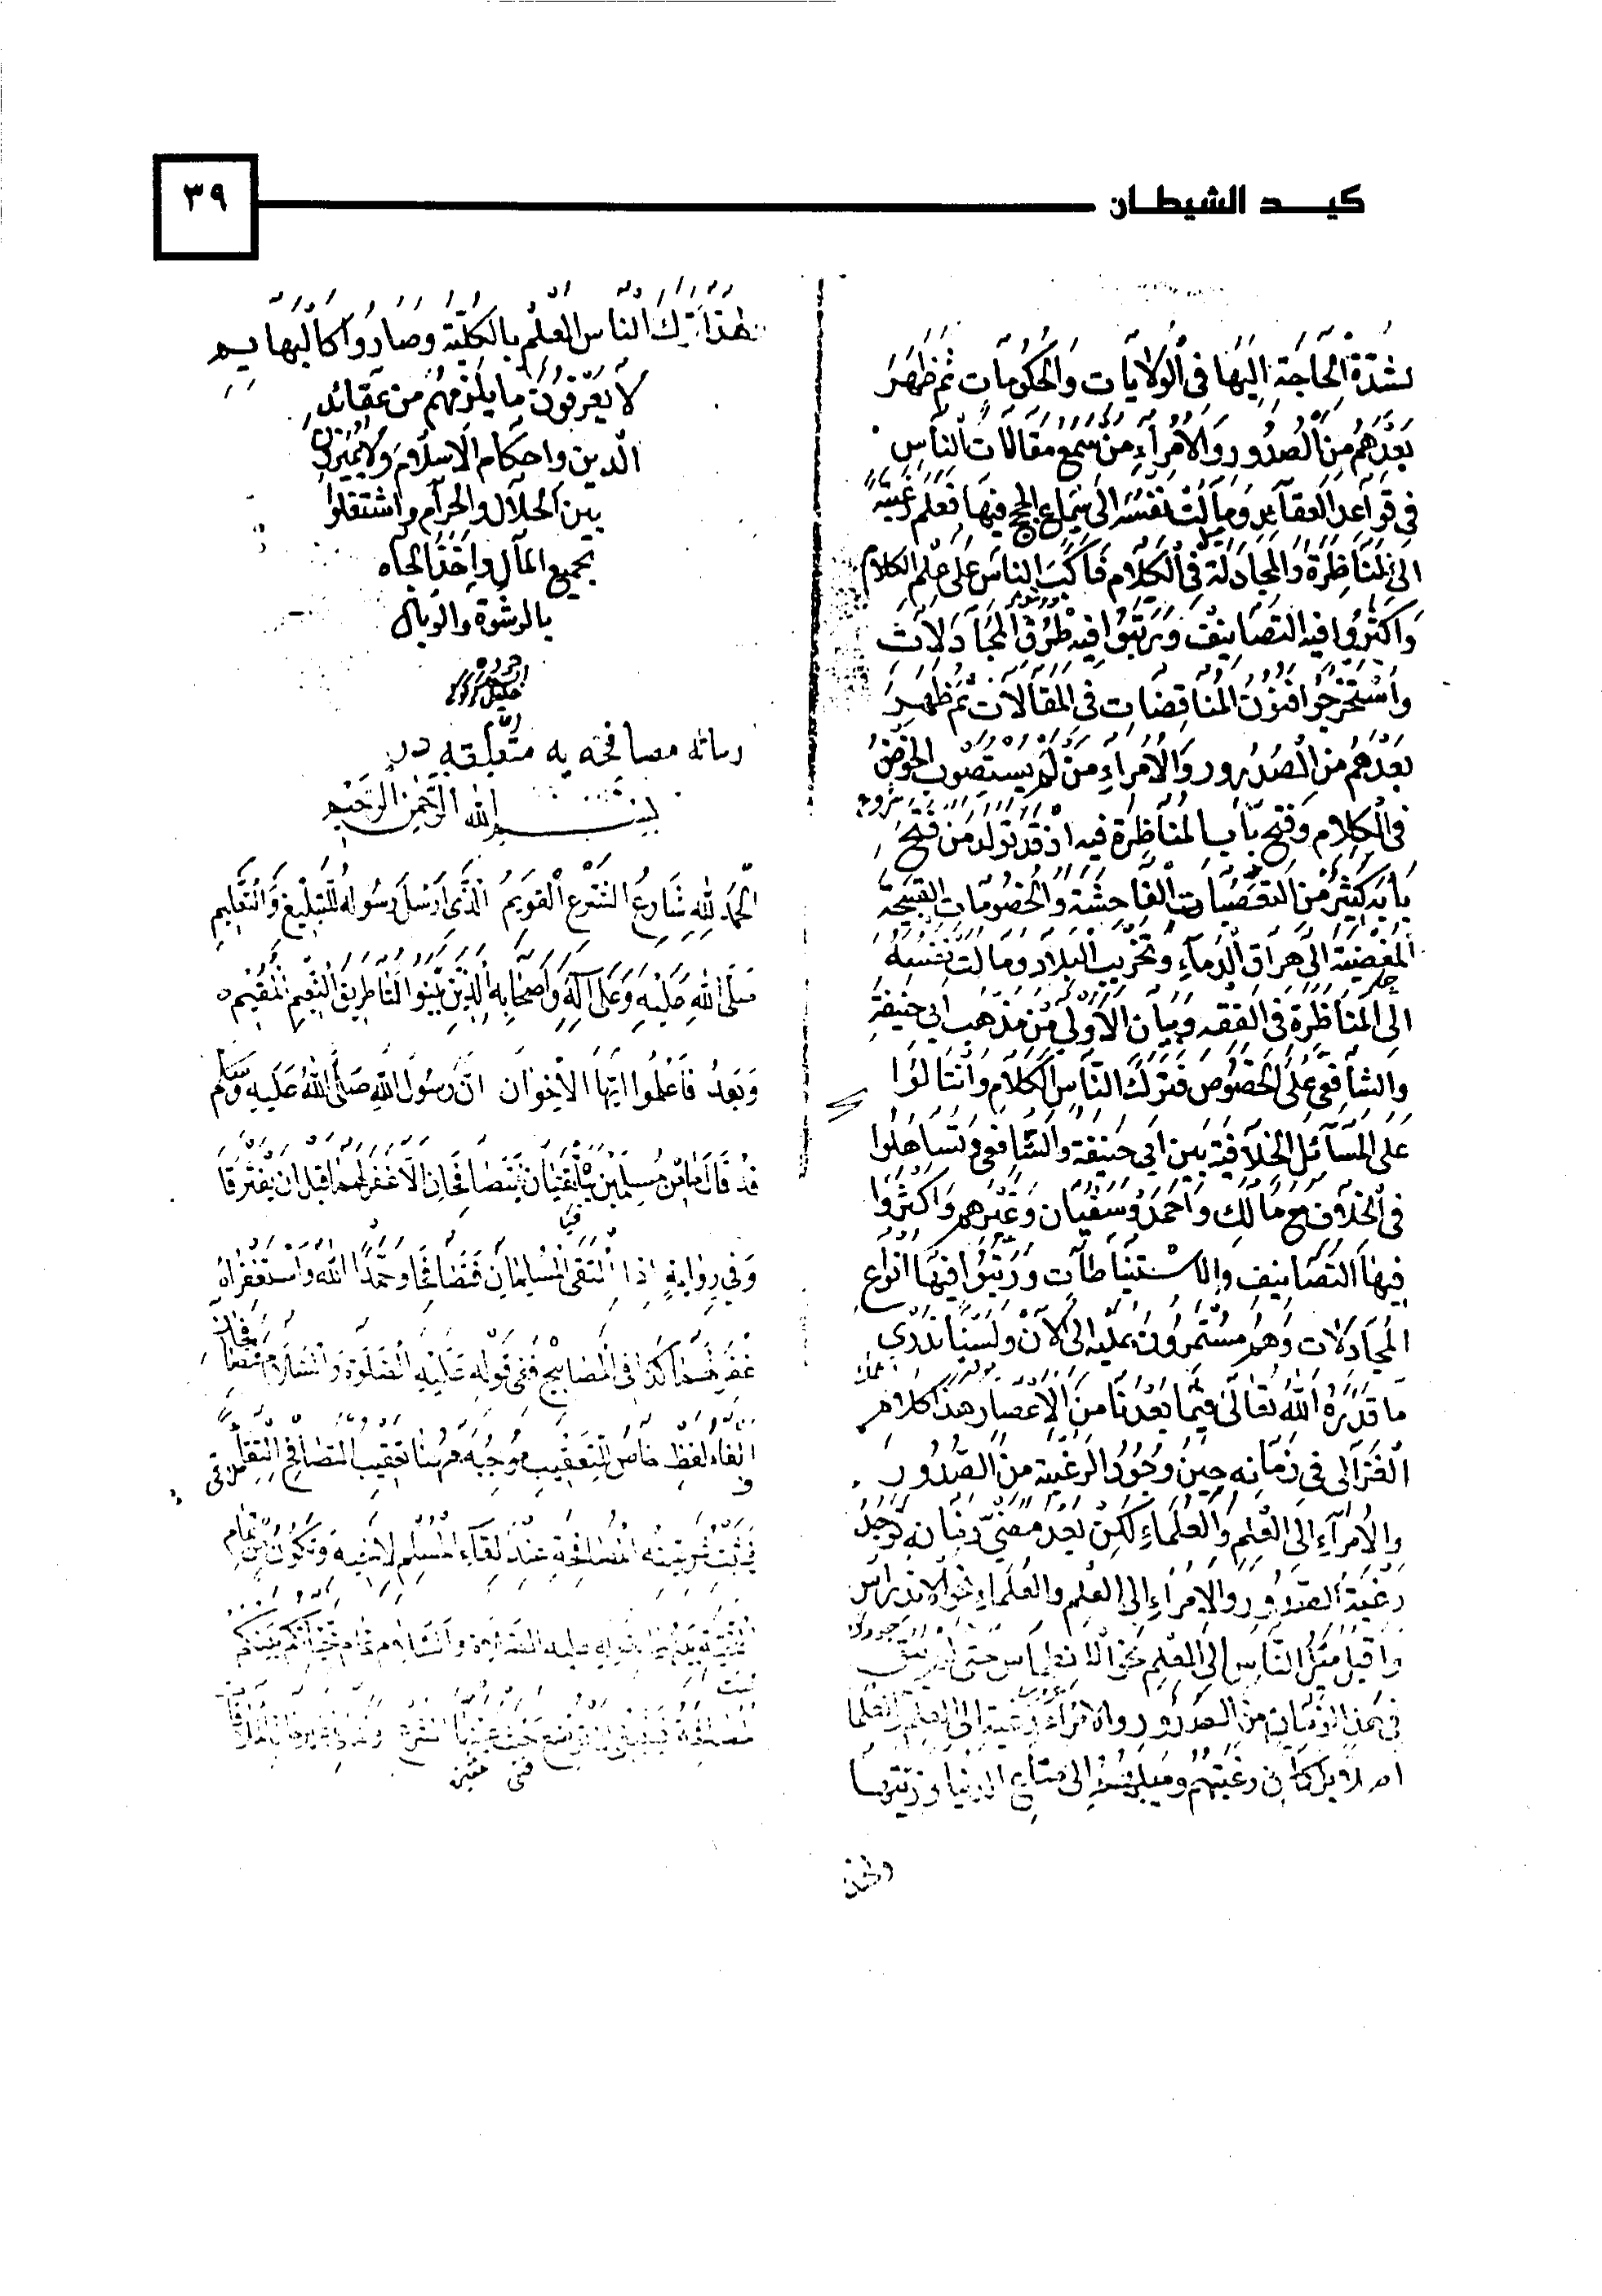 كيد الشيطان
٣٩
لشدة الحاجة اليها فى الولايات والحكومات ثم ظهر
بعدهم من الصدور والامراء من سمع مقالات الناس
فى قواعد العقائد ومالت نفسه الى سماع الحجج فيها فعلم رغبته
الى المناظرة والمجادلة فى الكلام فاكب الناس على علم الكلام
واكثروا فيه التصانيف ورتبوا فيه طرق المجادلات
واستخرجوا فنون المناقضات فى المقالات ثم ظهر
بعدهم من الصدور والامراء من لم يستصوب الخوض
فى الكلام وفتح باب المناظرة فيه اذ قد تولد من فتح
بابه كثير من التعصبات الفاحشة والخصومات القبيحة
المفضية الى هراق الدماء وتخريب البلاد ومالت نفسه
الى المناظرة فى الفقه وبيان الاولى من مذهب ابى حنيفة
والشافعى على الخصوص فترك الناس الكلام وانثالوا
على المسائل الخلافية بين ابى حنيفة والشافعى وتساهلوا
فى الخلاف مع مالك واحمد وسفيان وغيرهم واكثروا
فيها التصانيف والاستنباطات ورتبوا فيها انواع
المجادلات وهم مستمرون عليه الى الآن ولسنا ندرى
ما قدره الله تعالى فيما بعدنا من الاعصار هذا كلام
الغزالى فى زمانه حين وجود الرغبة من الصدور
والامراء الى العلم والعلماء لكن بعد مضى زمانه توجد
رغبة الصدور والامراء الى العلم والعلماء نحو الاندراس
واقبل ميل الناس الى العلم نحو الانطماس حتى لم يبق
فى هذا الزمان من الصدور والامراء رغبة الى العلم والعلما
اصلا بل كان رغبتهم وميل نفسهم الى متاع الدنيا وزينتها
ولهذا
ولهذا ترك الناس العلم بالكلية وصاروا كالبهايم
لا يعرفون ما يلزمهم من عقائد
الدين واحكام الاسلام ولا يميزون
بين الحلال والحرام واشتغلوا
بجميع المال واخذ الجاه
بالرشوة والوبال
رساله مصافحه يه متعلقه در
بسم الله الرحمن الرحيم
الحمد لله شارع الشرع القويم الذى ارسل رسوله للتبليغ والتعليم
صلى الله عليه وعلى آله واصحابه الذين بينوا لنا طريق النعيم المقيم
وبعد فاعلموا ايها الاخوان ان رسول الله صلى الله عليه وسلم
قد قال ما من مسلمين يلتقيان يتصافحان الا غفر لهما قبل ان يفترقا
وفي رواية اذا التقى المسلمان فتصافحا وحمدا الله واستغفراه
غفر لهما كذا فى المصابيح ففى قوله عليه الصلوة والسلام فيتصافحان
الفاء لفظ خاص للتعقيب وموجبه ههنا تعقيب التصافح التلاقى
فيثبت شرعية المصافحة عند لقاء المسلم لاخيه وتكون من تمام
التحية بينهما لقوله عليه الصلوة والسلام تمام تحياتكم بينكم
المصافحة فينبغى ان توضع حيث عينها الشرع